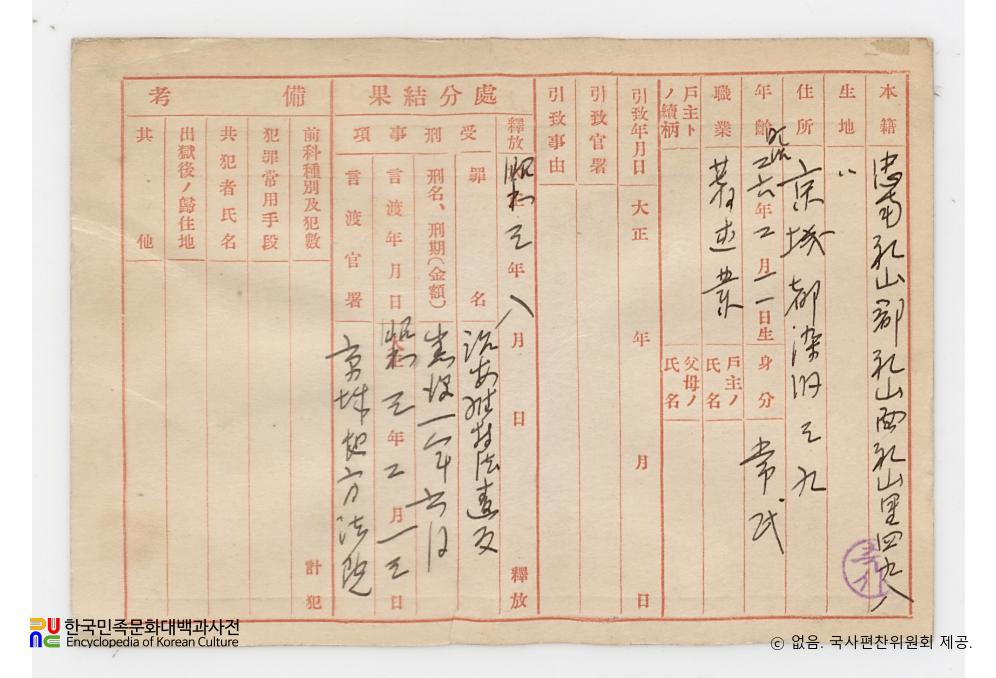 本籍 忠南礼山郡礼山面礼山里四九八
生地 〃
住所 京城 都染洞 三九
年齢 明治 二六年 二月 一一日生 身分 常民
職業 著述業 戶主ノ氏名
戶主トノ續柄 父母ノ氏名
引致年月日 大正 年 月 日
引致官署
引致事由
處分結果
釋放 昭和 三年 八月 日 釋放
受刑事項
罪名 治安維持法違反
刑名、刑期(金額) 懲役一年六月
言渡年月日 昭和 三年 二月一三日
言渡官署 京城地方法院
備考
前科種別及犯數 計 犯
犯罪常用手段
共犯者氏名
出獄後ノ歸住地
其他
한국민족문화대백과사전
Encyclopedia of Korean Culture
ⓒ 없음. 국사편찬위원회 제공.